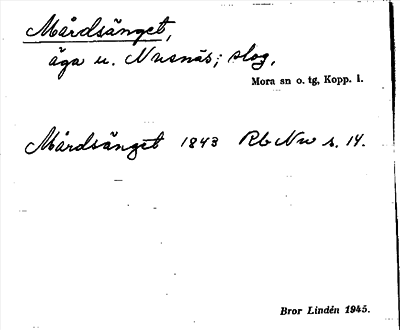 Mårdsänget,
äga u. Nusnäs; slog,
Mora sn o. tg, Kopp. l.
Mårdsänget 1843 Rb Nw s. 14.
Bror Lindén 1945.